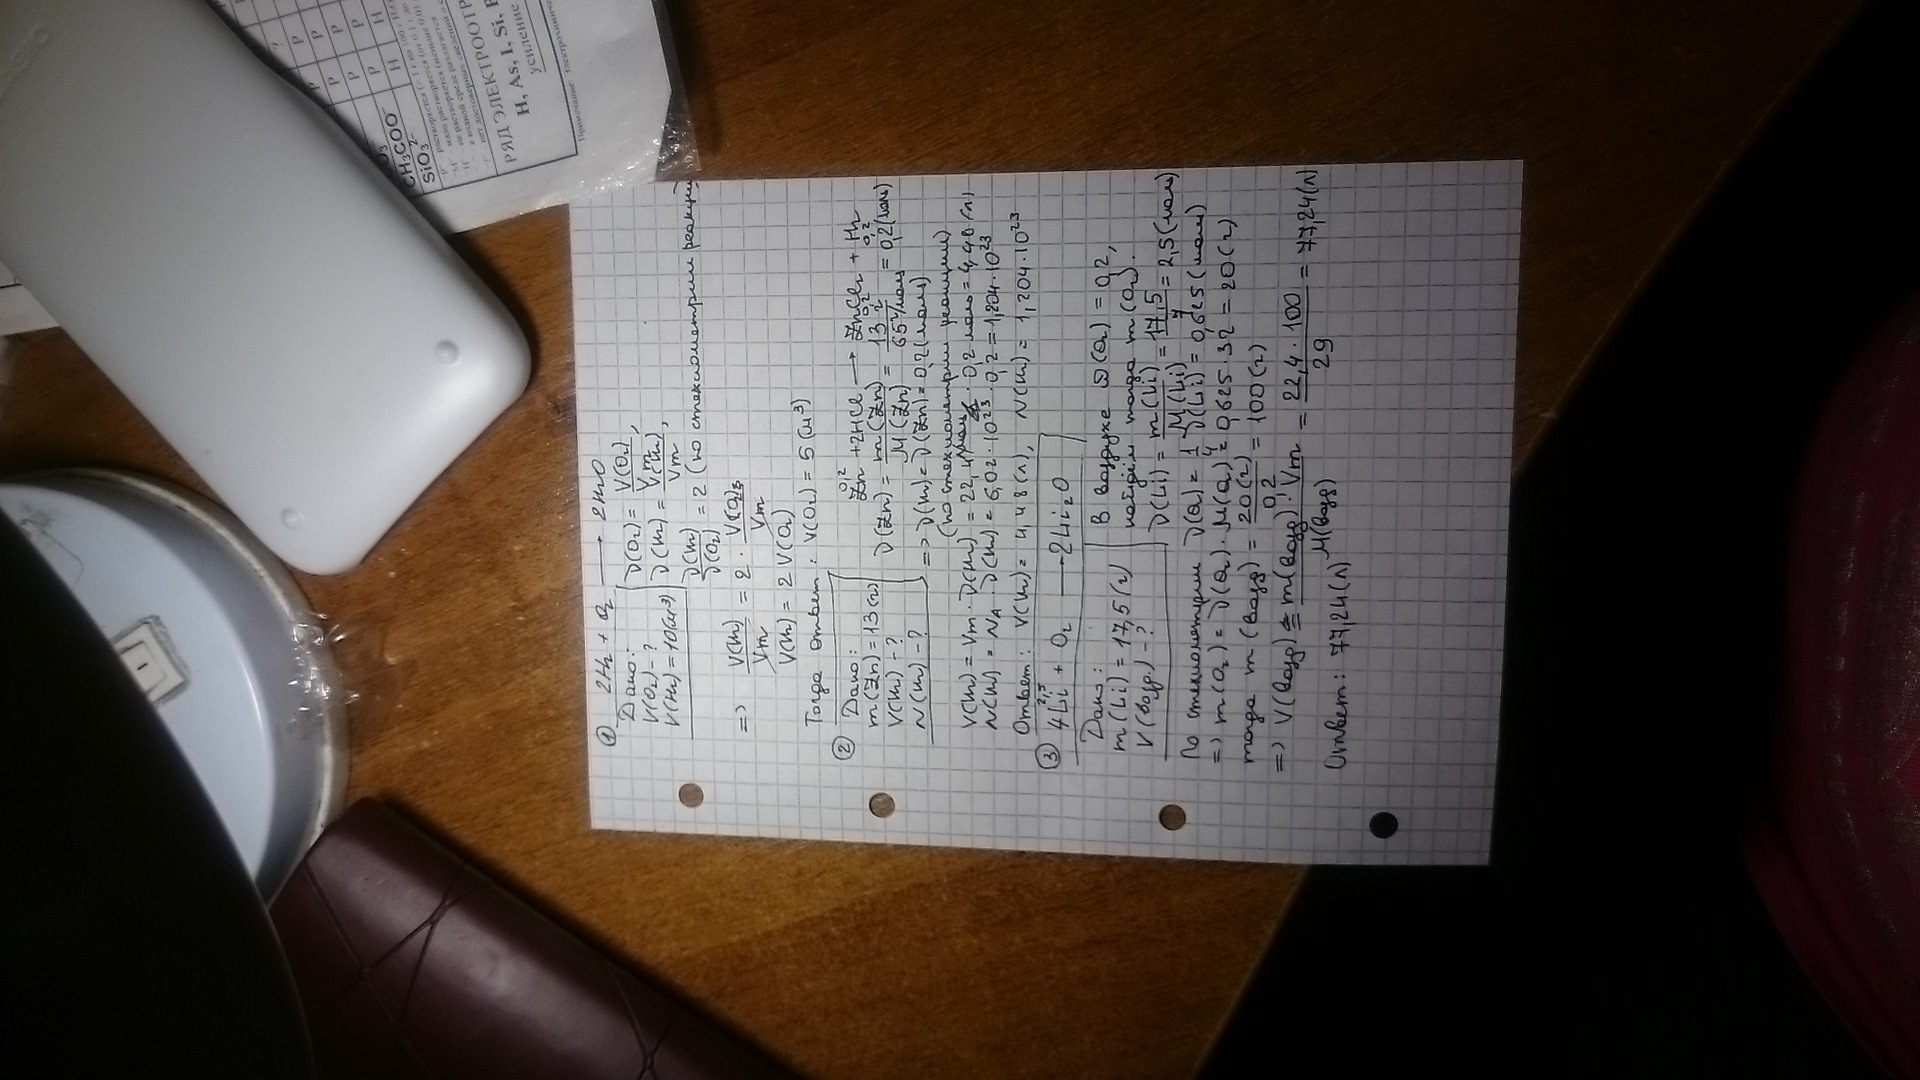 ① 2H₂ + O₂ → 2H₂O
Дано:
V(O₂) - ?
V(H₂) = 10(м³)
ν(O₂) = V(O₂)/Vm,
ν(H₂) = V(H₂)/Vm,
ν(H₂)/ν(O₂) = 2 (по стехиометрии реакции)
=> V(H₂)/Vm = 2 · V(O₂)/Vm
V(H₂) = 2 V(O₂)
Тогда ответ: V(O₂) = 5 (м³)
② Дано:
m(Zn) = 13(г)
V(H₂) - ?
N(H₂) - ?
0,2 0,2 0,2
Zn + 2HCl → ZnCl₂ + H₂
ν(Zn) = m(Zn)/M(Zn) = 13 г/65 г/моль = 0,2(моль)
=> ν(H₂) = ν(Zn) = 0,2(моль)
(по стехиометрии реакции)
V(H₂) = Vm · ν(H₂) = 22,4 · 0,2 моль = 4,48 (л)
N(H₂) = NA · ν(H₂) = 6,02 · 10²³ · 0,2 = 1,204 · 10²³
Ответ: V(H₂) = 4,48(л), N(H₂) = 1,204 · 10²³
③ 2,5
4Li + O₂ → 2Li₂O
Дано:
m(Li) = 17,5(г)
V(возд.) - ?
В воздухе ω(O₂) = 0,2,
найдём тогда m(O₂).
ν(Li) = m(Li)/M(Li) = 17,5/7 = 2,5(моль)
По стехиометрии ν(O₂) = 1/4 ν(Li) = 0,625(моль)
=> m(O₂) = ν(O₂) · M(O₂) = 0,625 · 32 = 20(г)
тогда m(возд) = 20(г)/0,2 = 100(г)
=> V(возд) = m(возд) · Vm/M(возд) = 22,4 · 100/29 = 77,24(л)
Ответ: 77,24(л)
CH₃COO⁻
SiO₃²⁻
РЯД ЭЛЕКТРООТР
H, As, I, Si, P
усиление